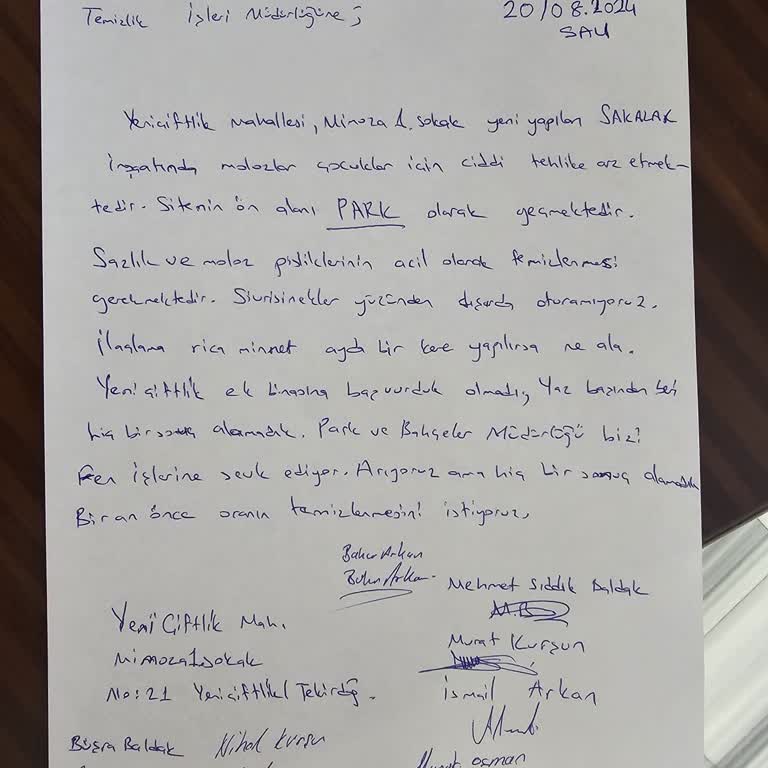 Temizlik İşleri Müdürlüğüne;
20/08.2024
SALI
Yeniçiftlik Mahallesi, Mimoza 1. sokak yeni yapılan SAKALAK
İnşaatında molozlar çocuklar için ciddi tehlike arz etmek-
tedir. Sitenin ön alanı PARK olarak geçmektedir.
Sazlık ve moloz pisliklerinin acil olarak temizlenmesi
gerekmektedir. Sivrisinekler yüzünden dışarda oturamıyoruz.
İlaçlama rica minnet ayda bir kere yapılırsa ne ala.
Yeniçiftlik ek binasına başvurduk olmadı, Yaz başından beri
hiç bir sonuç alamadık. Park ve Bahçeler Müdürlüğü bizi
Fen işlerine sevk ediyor. Arıyoruz ama hiç bir sonuç alamadık
Bir an önce oranın temizlenmesini istiyoruz,
Arkan
Arkan
Mehmet Sıddık Baldak
M.B
Yeni Çiftlik Mah.
Murat Kurşun
Mimoza 1 sokak
No:21 Yeniçiftlik/ Tekirdağ.
İsmail Arkan
Büşra Baldak Nihal Kurşun
Osman